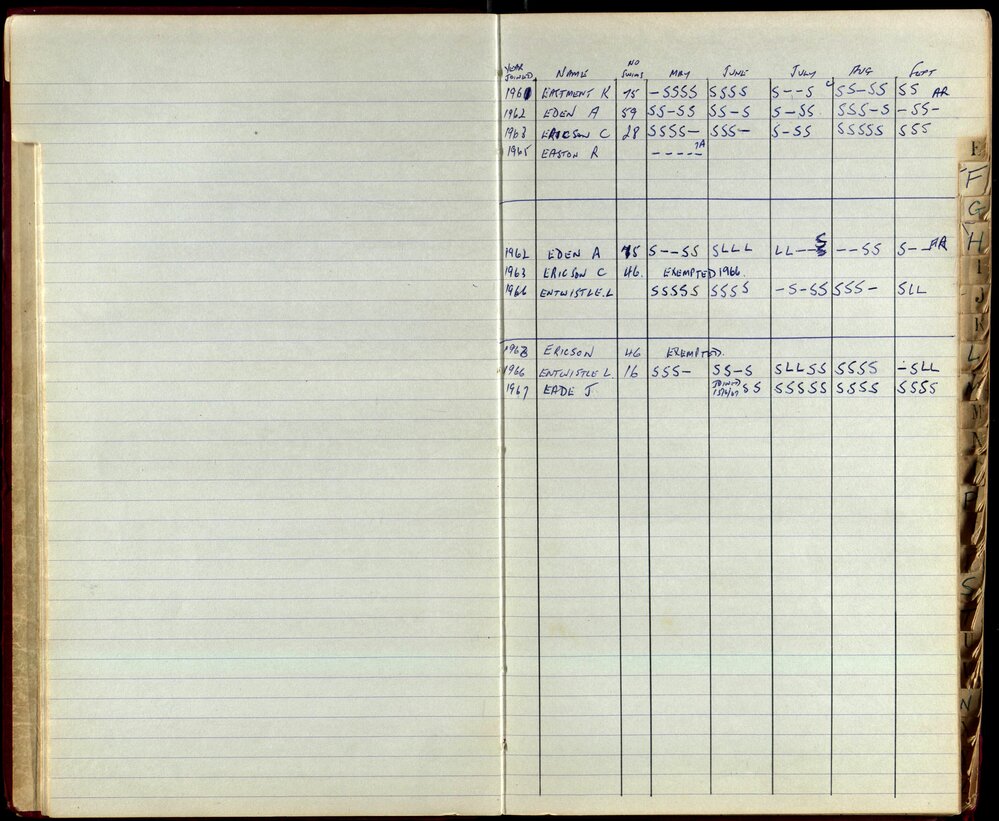 YEAR JOINED NAME NO SWIMS MAY JUNE JULY AUG SEPT
1961 EASTMENT K 75 -SSSS SSSS S--S SS-SS SS AR
1962 EDEN A 59 SS-SS SS-S S-SS. SSS-S -SS-
1963 ERICSON C 28 SSSS- SSS- S-SS SSSSS SSS
1965 EASTON R -----
1962 EDEN A 75 S--SS SLLL LL--S --SS S-- AR
1963 ERICSON C 46. EXEMPTED 1966.
1966 ENTWISTLE.L SSSSS SSSS -S-SS SSS- SLL
1963 ERICSON 46 EXEMPTED.
1966 ENTWISTLE L. 16 SSS- SS-S SLLSS SSSS -SLL
1967 EADE J JOINED SS SSSSS SSSS SSSS
E
F
G
H
I
J
K
L
M
N
P
S